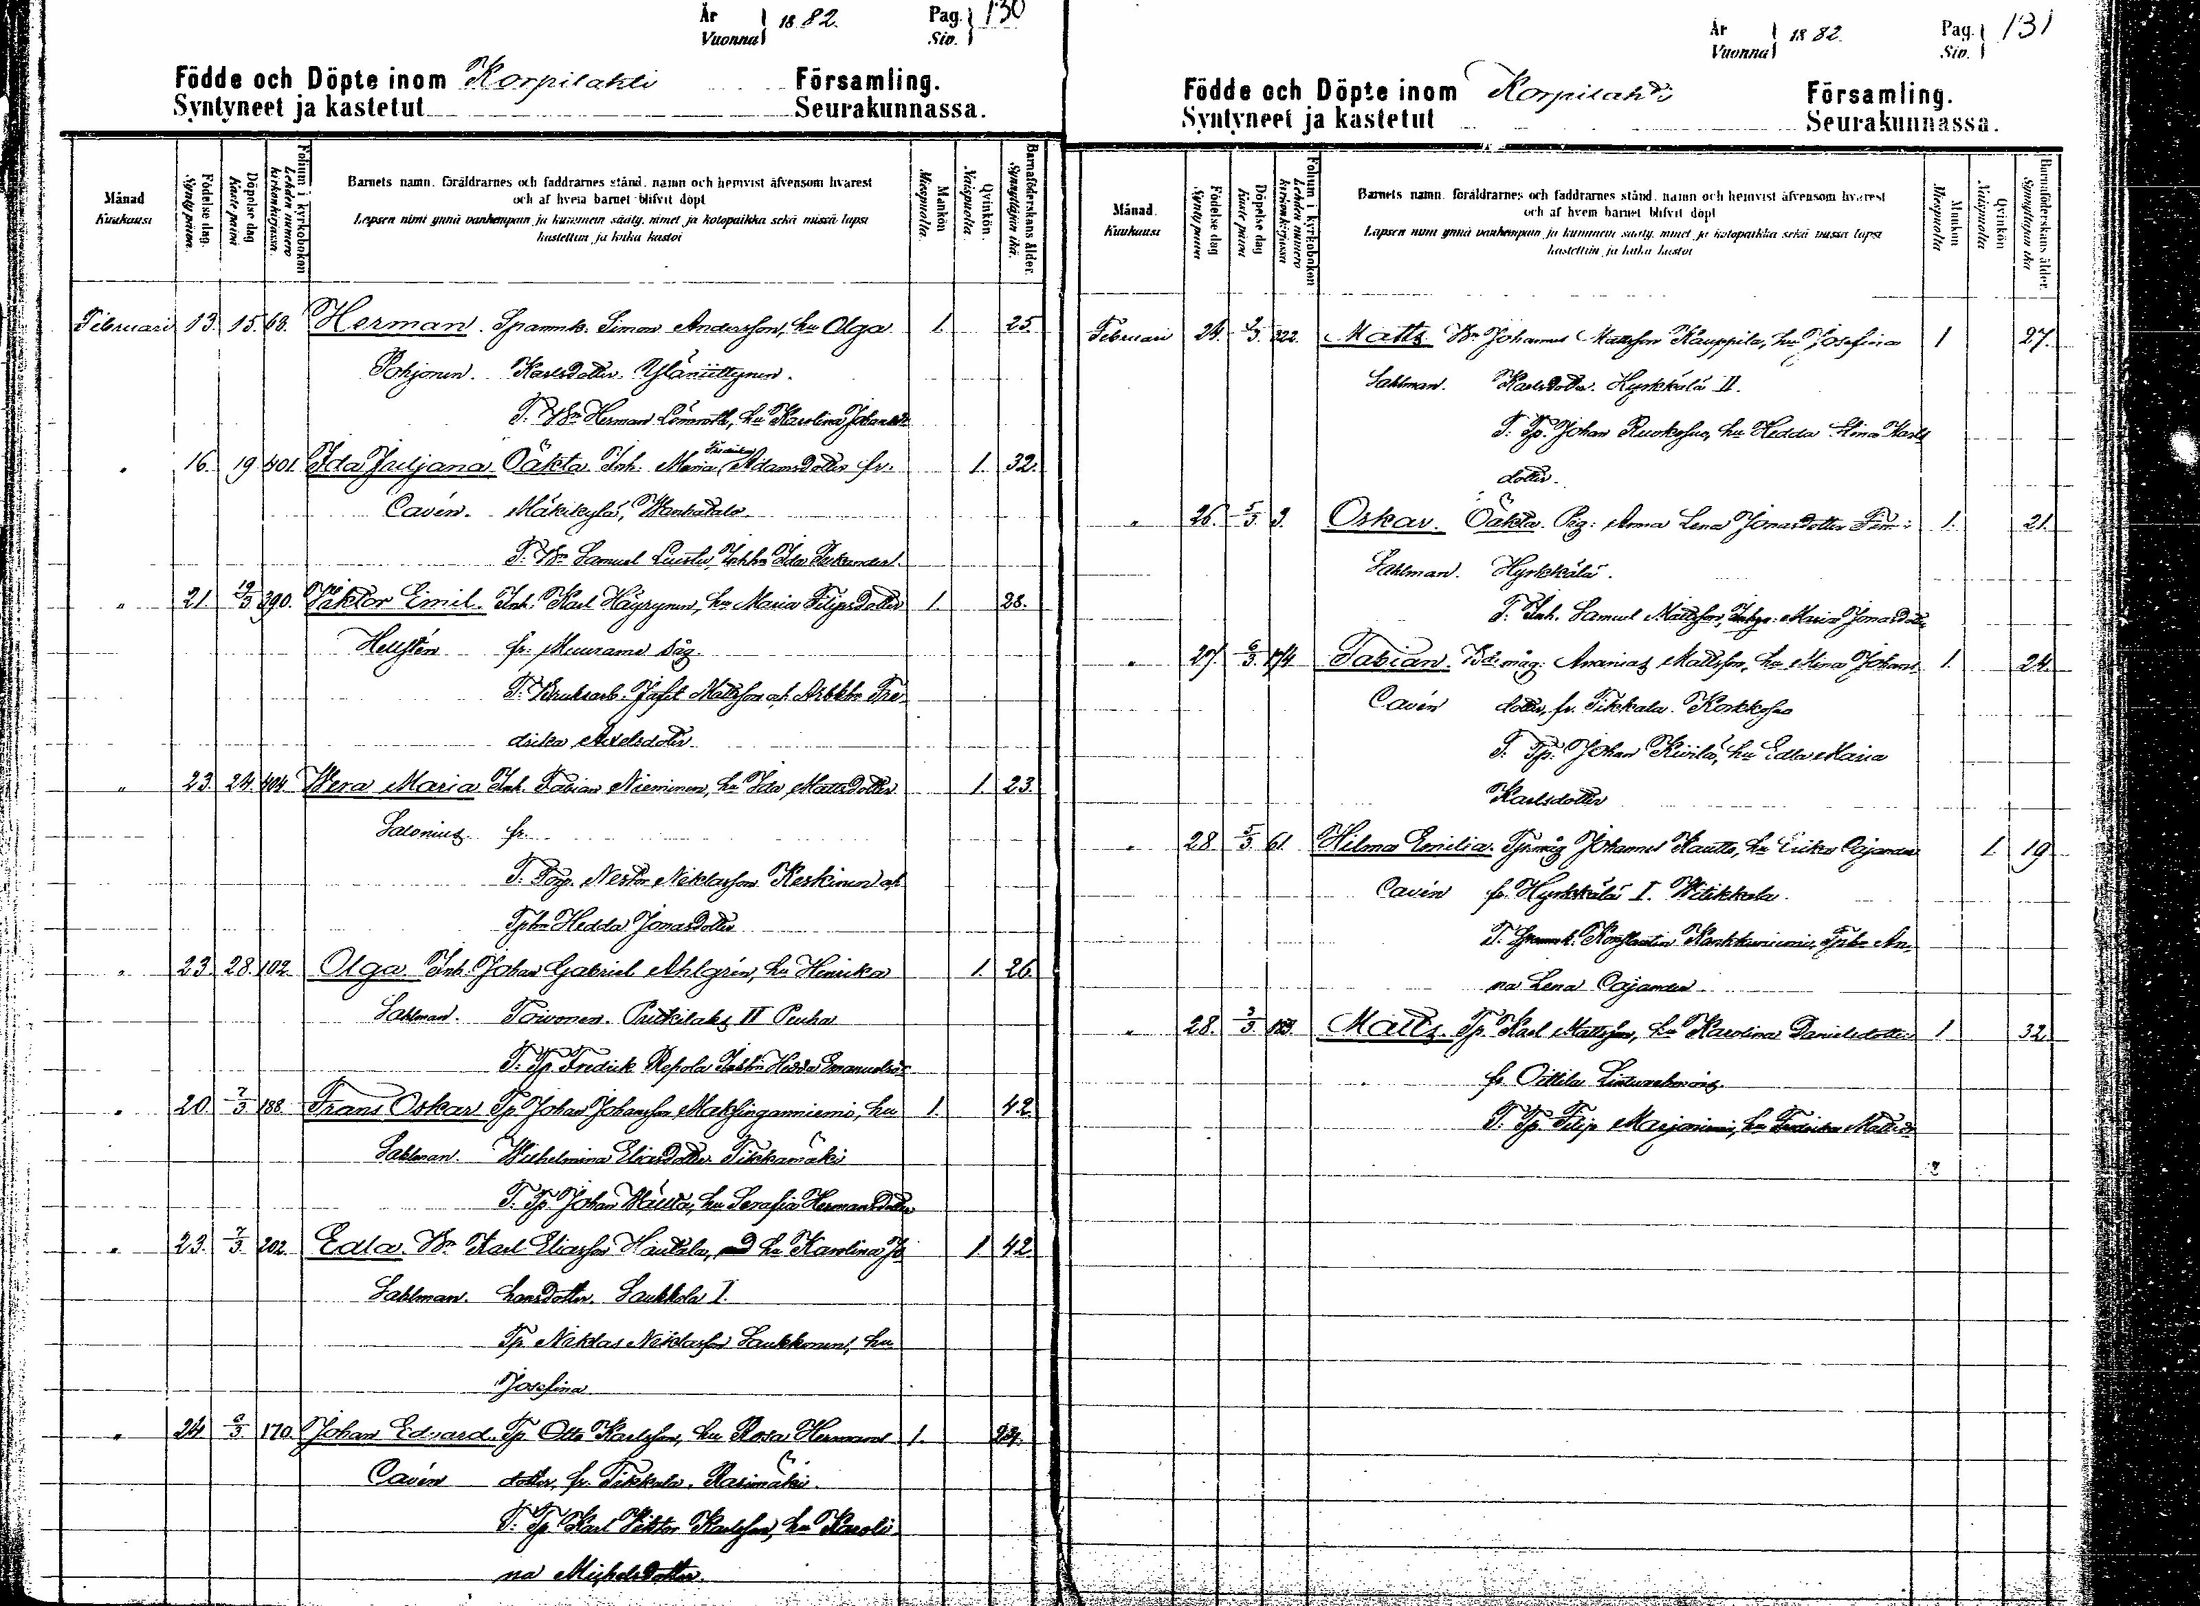 År Vuonna 18 82. Pag. Siv. 130
Födde och Döpte inom Korpilahti Församling.
Syntyneet ja kastetut Seurakunnassa.
Månad Kuukausi
Födelse dag. Syntypäivä.
Döpelse dag Kastepäivä
Folium i kyrkoboken Lehden numero kirkonkirjassa.
Barnets namn, föräldrarnes och faddrarnes stånd, namn och hemvist äfvensom hvarest
och af hvem barnet blifvit döpt
Lapsen nimi ynnä vanhempain ja kummein sääty, nimet ja kotopaikka sekä missä lapsi
kastettiin ja kuka kastoi
Mankön Miespuolia.
Qvinkön. Naispuolia.
Barnaföderskans ålder. Synnyttäjän ikä.
Februari 13. 15. 68. Herman. Spannk. Simon Andersson, hu Olga 1. 25.
Pohjonen. Karlsdotter. Yläniittynen.
T. Bn Herman Lönnroth, hu Karolina Johansdr
" 16. 19 401. Ida Juljana. Oäkta. Inh. Maria Fredrika Adamsdotter fr. 1. 32.
Cavén. Mäkikylä,
T. Bn Samuel
" 21. 19/3 390. Viktor Emil. Inh. Karl Häyrynen, hu Maria Filipsdotter 1. 28.
Hellstén fr. Muurame såg.
T. Bruksarb. Jafet Mattsson och Arbkhn Fre-
drika Axelsdoter
" 23. 24. 404 Wera Maria Inh. Fabian Nieminen, hu Ida Mattsdotter 1. 23.
Salonius. fr.
T. Torp. Nestor Niklasson Keskinen och
Tphn Hedda Jonasdotter
" 23. 28. 102. Olga. Inh. Johan Gabriel Ahlgrén, hu Henrika 1. 26.
Sahlman. Toivonen. Putkilaks II Penha
T. Tp Fredrik Repola Hedda
" 20. 7/3 188. Frans Oskar Tp Johan Johansson hu 1. 42.
Sahlman. Wilhelmina Eliasdotter Tikkamäki
T. Tp. Johan hu Serafia Hermansdotter
" 23. 7/3 202. Edla. Bn Karl Eliasson Hautala, hu Karolina Jo 1 42.
Sahlman. hansdotter. Saukkola I.
Tp Niklas Niklasson Saukkonen, hu
Josefina
" 24. 6/3 170. Johan Edvard. Tp Otto Karlsson, hu Rosa Hermans 1.
Cavén dotter, fr. Tikkala. Rasimäki.
T. Tp Karl Viktor Karlsson, hu Karoli
na Michelsdotter.
År Vuonna 18 82. Pag. Siv. 131
Födde och Döpte inom Korpilahti Församling.
Syntyneet ja kastetut Seurakunnassa.
Månad. Kuukausi
Födelse dag Syntypäivä
Döpelse dag Kaste päivä
Folium i kyrkoboken Lehden numero kirkonkirjassa
Barnets namn, föräldrarnes och faddrarnes stånd, namn och hemvist äfvensom hvarest
och af hvem barnet blifvit döpt
Lapsen nimi ynnä vanhempain ja kummein sääty, nimet ja kotopaikka sekä missä lapsi
kastettiin ja kuka kastoi
Mankön Miespuolia
Qvinkön Naispuolia
Barnaföderskans ålder Synnyttäjän ikä
Februari 24. 2/3 322. Matts. Bn Johannes Mattsson Kauppila, hu Josefina 1 27.
Sahlman. Karlsdotter. Hyrkkälä II.
T. Tp. Johan hu Hedda Stina Karls
dotter.
" 26. 5/3 3. Oskar. Oäkta. Pig: Anna Lena Jonasdotter 1. 21.
Sahlman. Hyrkkälä.
T. Inh. Samuel Mattsson, Maria Jonasdotter
" 27. 6/3 174 Fabian. Bdemåg. Ananias Mattsson, hu Mina Johans- 1. 24.
Cavén dotter, fr. Tikkala. Korkkosuo
T. Tp. Johan Kivilä, hu Edla Maria
Karlsdotter
" 28 5/3 61. Hilma Emilia. Tpmåg Johannes Kautto, hu Erika Cajander 1. 19
Cavén fr. Hyrkkälä I. Witikkala.
T. Spannk. Konstantin Tphn An-
na Lena Cajander
" 28. 3/3 Matts. Tp. Karl Mattsson, hu Karolina Danielsdotter 1 32.
fr. Oittila
T. Tp. Filip Marjoniemi, hu Fredrika Mattsdr